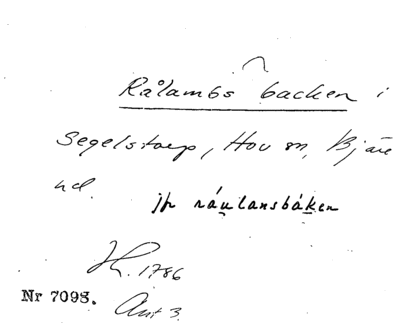 Rålambs backen i
Segelstorp, Hov sn, Bjäre
hd.
jfr råulansbáken
H. 1786
Nr 7098.
Ant 3.